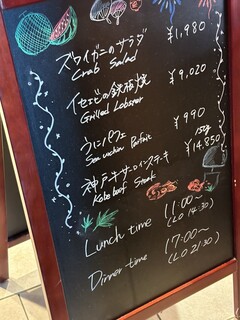 ズワイガニのサラダ ¥1,980
Crab Salad
イセエビの鉄板焼 ¥9,020
Grilled Lobster
うにパフェ ¥990
Sea urchin Parfait
150g
神戸牛サーロインステーキ ¥14,850
Kobe beef Steak
Lunch time 11:00~
(LO 14:30)
Dinner time 17:00~
(LO 21:30)